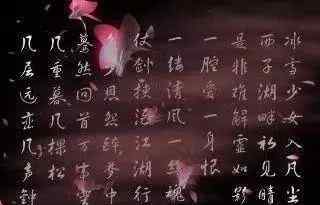 冰雪少女入凡尘
西子湖畔初见晴
是非难解虚如影
一腔爱一身恨
一缕清风一丝魂
仗剑挟酒江湖行
多少恩怨醉梦中
蓦然回首万事空
几重暮几棵松
几层远峦几声钟